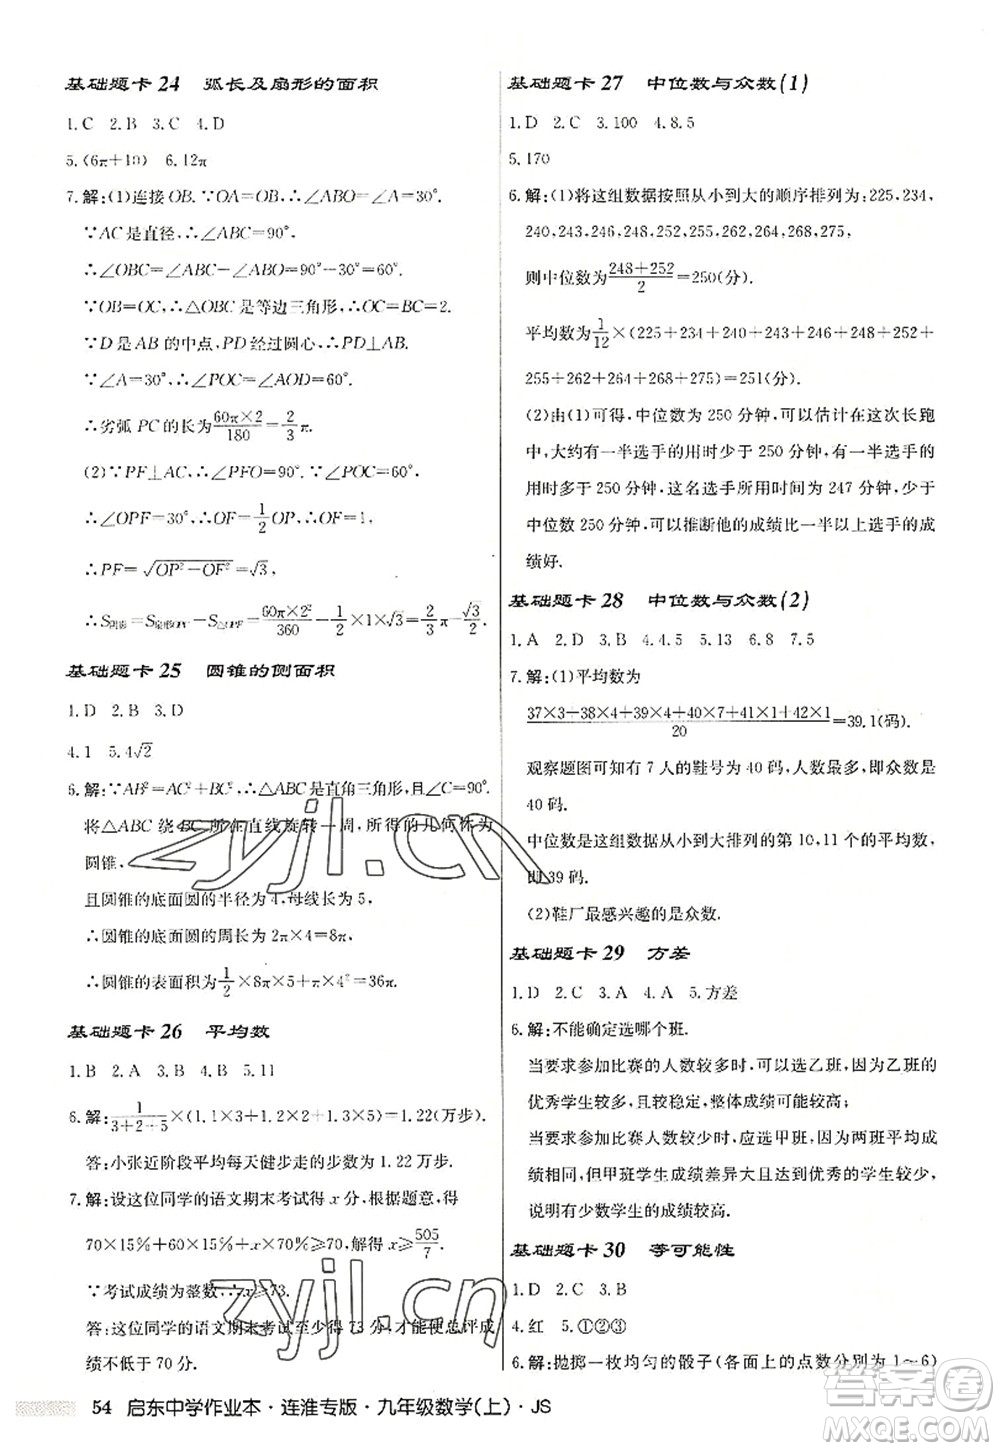 基础题卡 24 弧长及扇形的面积
1.C 2.B 3.C 4.D
5.(6π+10) 6.12π
7.解:(1)连接OB.∵OA=OB,∴∠ABO=∠A=30°.
∵AC是直径,∴∠ABC=90°.
∴∠OBC=∠ABC-∠ABO=90°-30°=60°.
∵OB=OC,∴△OBC是等边三角形,∴OC=BC=2.
∵D是AB的中点,PD经过圆心,∴PD⊥AB.
∵∠A=30°,∴∠POC=∠AOD=60°.
∴劣弧PC的长为60π×2/180=2/3π.
(2)∵PF⊥AC,∴∠PFO=90°,∵∠POC=60°.
∴∠OPF=30°,∴OF=1/2OP,∴OF=1.
∴PF=√(OP²-OF²)=√3.
∴S阴影=S扇形OPC-S△OPF=60π×2²/360-1/2×1×√3=2π/3-√3/2.
基础题卡 25 圆锥的侧面积
1.D 2.B 3.D
4.1 5.4√2
6.解:∵AB²=AC²+BC²,∴△ABC是直角三角形,且∠C=90°.
将△ABC绕BC所在直线旋转一周,所得的几何体为
圆锥.
且圆锥的底面圆的半径为4,母线长为5.
∴圆锥的底面圆的周长为2π×4=8π.
∴圆锥的表面积为1/2×8π×5+π×4²=36π.
基础题卡 26 平均数
1.B 2.A 3.B 4.B 5.11
6.解:1/(3+2+5)×(1.1×3+1.2×2+1.3×5)=1.22(万步).
答:小张近阶段平均每天健步走的步数为1.22万步.
7.解:设这位同学的语文期末考试得x分,根据题意,得
70×15%+60×15%+70%x≥70,解得x≥505/7.
∵考试成绩为整数,∴x≥73.
答:这位同学的语文期末考试至少得73分,才能使总评成
绩不低于70分.
54 启东中学作业本·连淮专版·九年级数学(上)·JS
基础题卡 27 中位数与众数(1)
1.D 2.C 3.100 4.8.5
5.170
6.解:(1)将这组数据按照从小到大的顺序排列为:225,234,
240,243,245,248,252,255,262,265,268,275,
则中位数为(248+252)/2=250(分).
平均数为1/12×(225+234+240+243+245+248+252+
255+262+265+268+275)=251(分).
(2)由(1)可得,中位数为250分钟,可以估计在这次长跑
中,大约有一半选手的用时少于250分钟,有一半选手的
用时多于250分钟,这名选手所用时间为247分钟,少于
中位数250分钟,可以推断他的成绩比一半以上选手的成
绩好.
基础题卡 28 中位数与众数(2)
1.A 2.D 3.B 4.4.5 5.13 6.8 7.5
7.解:(1)平均数为
(37×3+38×4+39×4+40×7+41×1+42×1)/20=39.1(码).
观察题图可知有7人的鞋号为40码,人数最多,即众数是
40码.
中位数是这组数据从小到大排列的第10,11个的平均数,
即39码.
(2)鞋厂最感兴趣的是众数.
基础题卡 29 方差
1.D 2.C 3.A 4.A 5.方差
6.解:不能确定选哪个班.
当要求参加比赛的人数较多时,可以选乙班,因为乙班的
优秀学生较多,且较稳定,整体成绩可能较好.
当要求参加比赛人数较少时,可以选甲班,因为两班平均成
绩相同,但甲班学生成绩差异大且优秀学生较少,
有可能少数学生的成绩较高.
基础题卡 30 等可能性
1.D 2.C 3.B
4.红 5.①②③
6.解:抛掷一枚均匀的骰子(各面上的点数分别为1~6)
zyjl.cn
zyjl.cn
答案圈
MXQE.COM